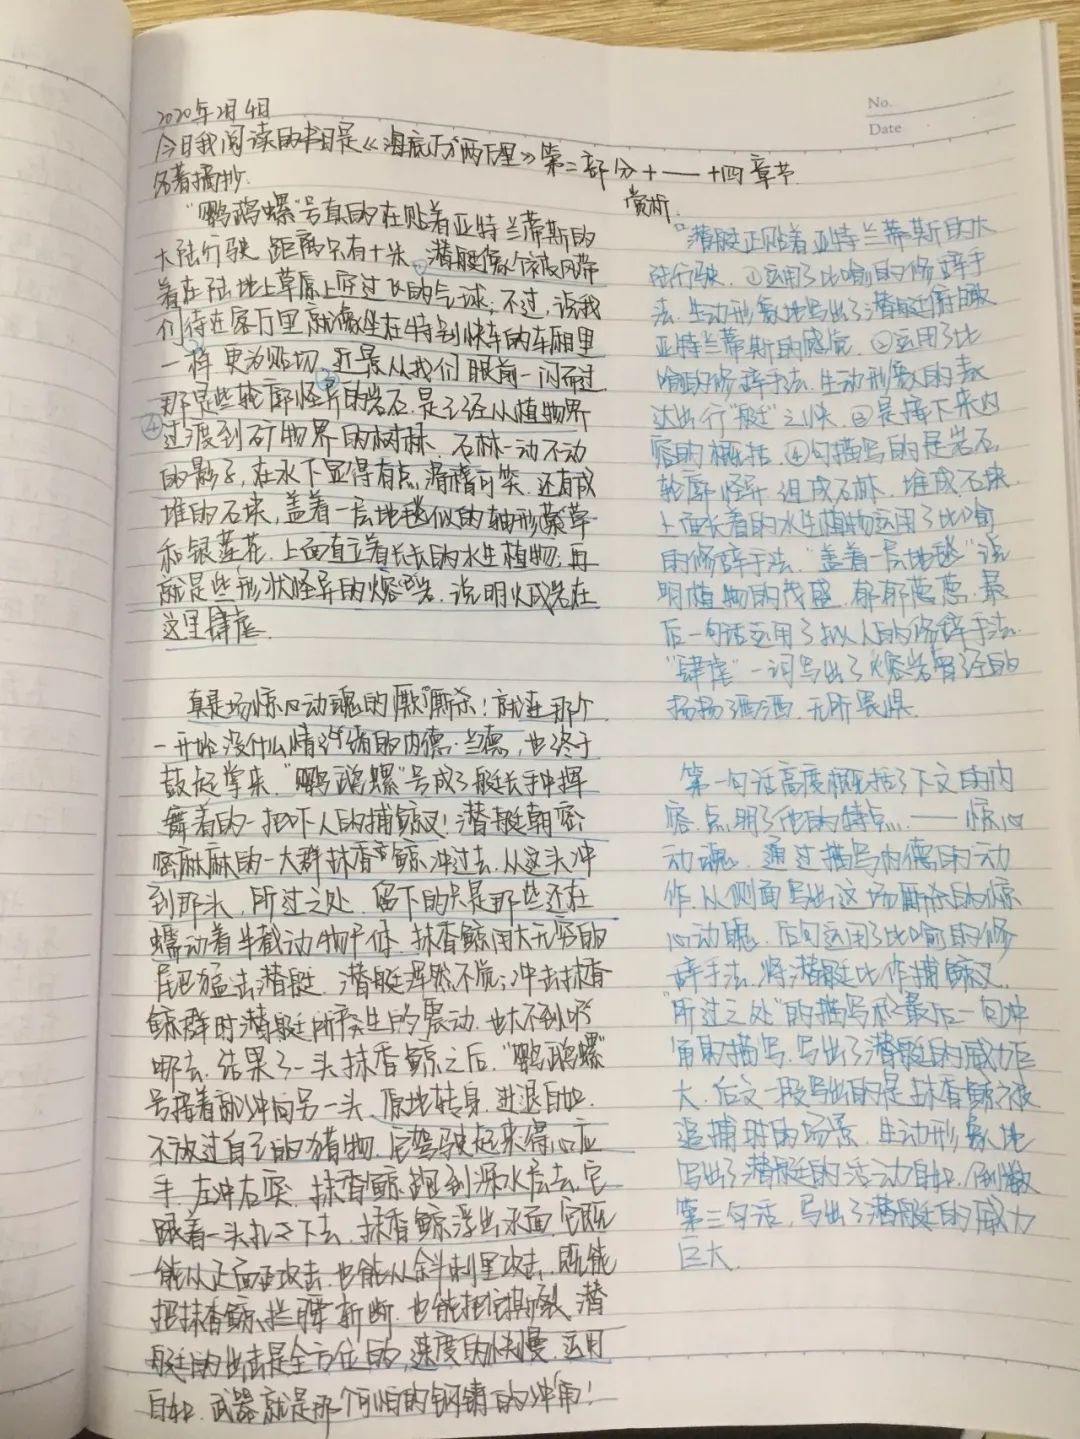 No.
Date
2020年2月4日
今日我阅读的书目是《海底万两万里》第二部分十一—十四章节
名著摘抄
"鹦鹉螺"号真的在贴着亚特兰蒂斯的
大陆行驶,距离只有十米,潜艇像个被风带
着在陆地上草原上空过飞的气球;不过,说我
们待在客厅里就像坐在特别快车的车厢里
一样更为贴切,近景从我们眼前一闪而过,
那是些轮廓怪异的岩石,是已经从植物界
过渡到矿物界的树林,石林一动不动
的影子,在水下显得有点滑稽可笑,还有成
堆的石块,盖着一层地毯似的轴形藻草
和银莲花,上面直立着长长的水生植物,再
就是些形状怪异的熔岩,说明火成岩在
这里肆虐.
真是场惊心动魂的厮杀!就连那个
一开始没什么情绪的内德·兰德,也终于
鼓起掌来,"鹦鹉螺"号成了艇长手中挥
舞着的一把吓人的捕鲸叉!潜艇朝密
密麻麻的一大群抹香鲸冲过去,从这头冲
到那头,所过之处,留下的只是那些还在
蠕动着半截动物尸体.抹香鲸用大无穷的
尾巴猛击潜艇,潜艇浑然不觉;冲击抹香
鲸群时潜艇所产生的震动,也大不到
哪去,结果了一头抹香鲸之后,"鹦鹉螺"
号接着就冲向另一头,原地转身,进退自如,
不放过自己的猎物,它驾驶起来得心应
手,左冲右突,抹香鲸跑到深水层去,它
跟着一头扎下去,抹香鲸浮出水面,它既
能从正面攻击,也能从斜刺里攻击,既能
把抹香鲸拦腰斩断,也能把它撕裂,潜
艇的出击是全方位的,速度的快慢,运用
自如,武器就是那个可怕的钢铸的冲角!
赏析.
"潜艇正贴着亚特兰蒂斯的大
陆行驶.①运用了比喻的修辞手
法,生动形象地写出了潜艇俯瞰
亚特兰蒂斯的感觉.②运用了比
喻的修辞手法,生动形象的表
达出行"艇"之快.③是接下来内
容的概括.④句描写的是岩石
轮廓怪异,组成石林,堆成石块,
上面长着的水生植物运用了比喻
的修辞手法,"盖着一层地毯"说
明植物的茂盛,郁郁葱葱,最
后一句话运用了拟人的修辞手法.
"肆虐"一词写出了火熔岩曾经的
扬扬洒洒,无所畏惧.
第一句话高度概括了下文的内
容,点明了他的特点,——惊心
动魂,通过描写内德的动
作,从侧面写出这场厮杀的惊
心动魂,后句运用了比喻的修
辞手法,将潜艇比作捕鲸叉,
"所过之处"的描写和最后一句冲
角的描写,写出了潜艇的威力巨
大,后文一段写出的是抹香鲸被
追捕时的场景,生动形象地
写出了潜艇的活动自如,倒数
第三句话,写出了潜艇的威力
巨大.